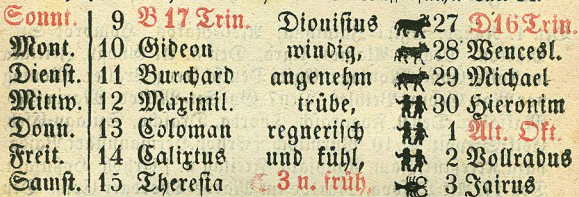 Sonnt. 9 B 17 Trin. Dionisius 27 D16 Trin.
Mont. 10 Gideon windig, 28 Wencesl.
Dienst. 11 Burchard angenehm 29 Michael
Mittw. 12 Maximil. trübe, 30 Hieronim
Donn. 13 Coloman regnerisch 1 Alt. Okt.
Freit. 14 Calixtus und kühl, 2 Vollradus
Samst. 15 Theresia ☾ 3 n. früh, 3 Jairus